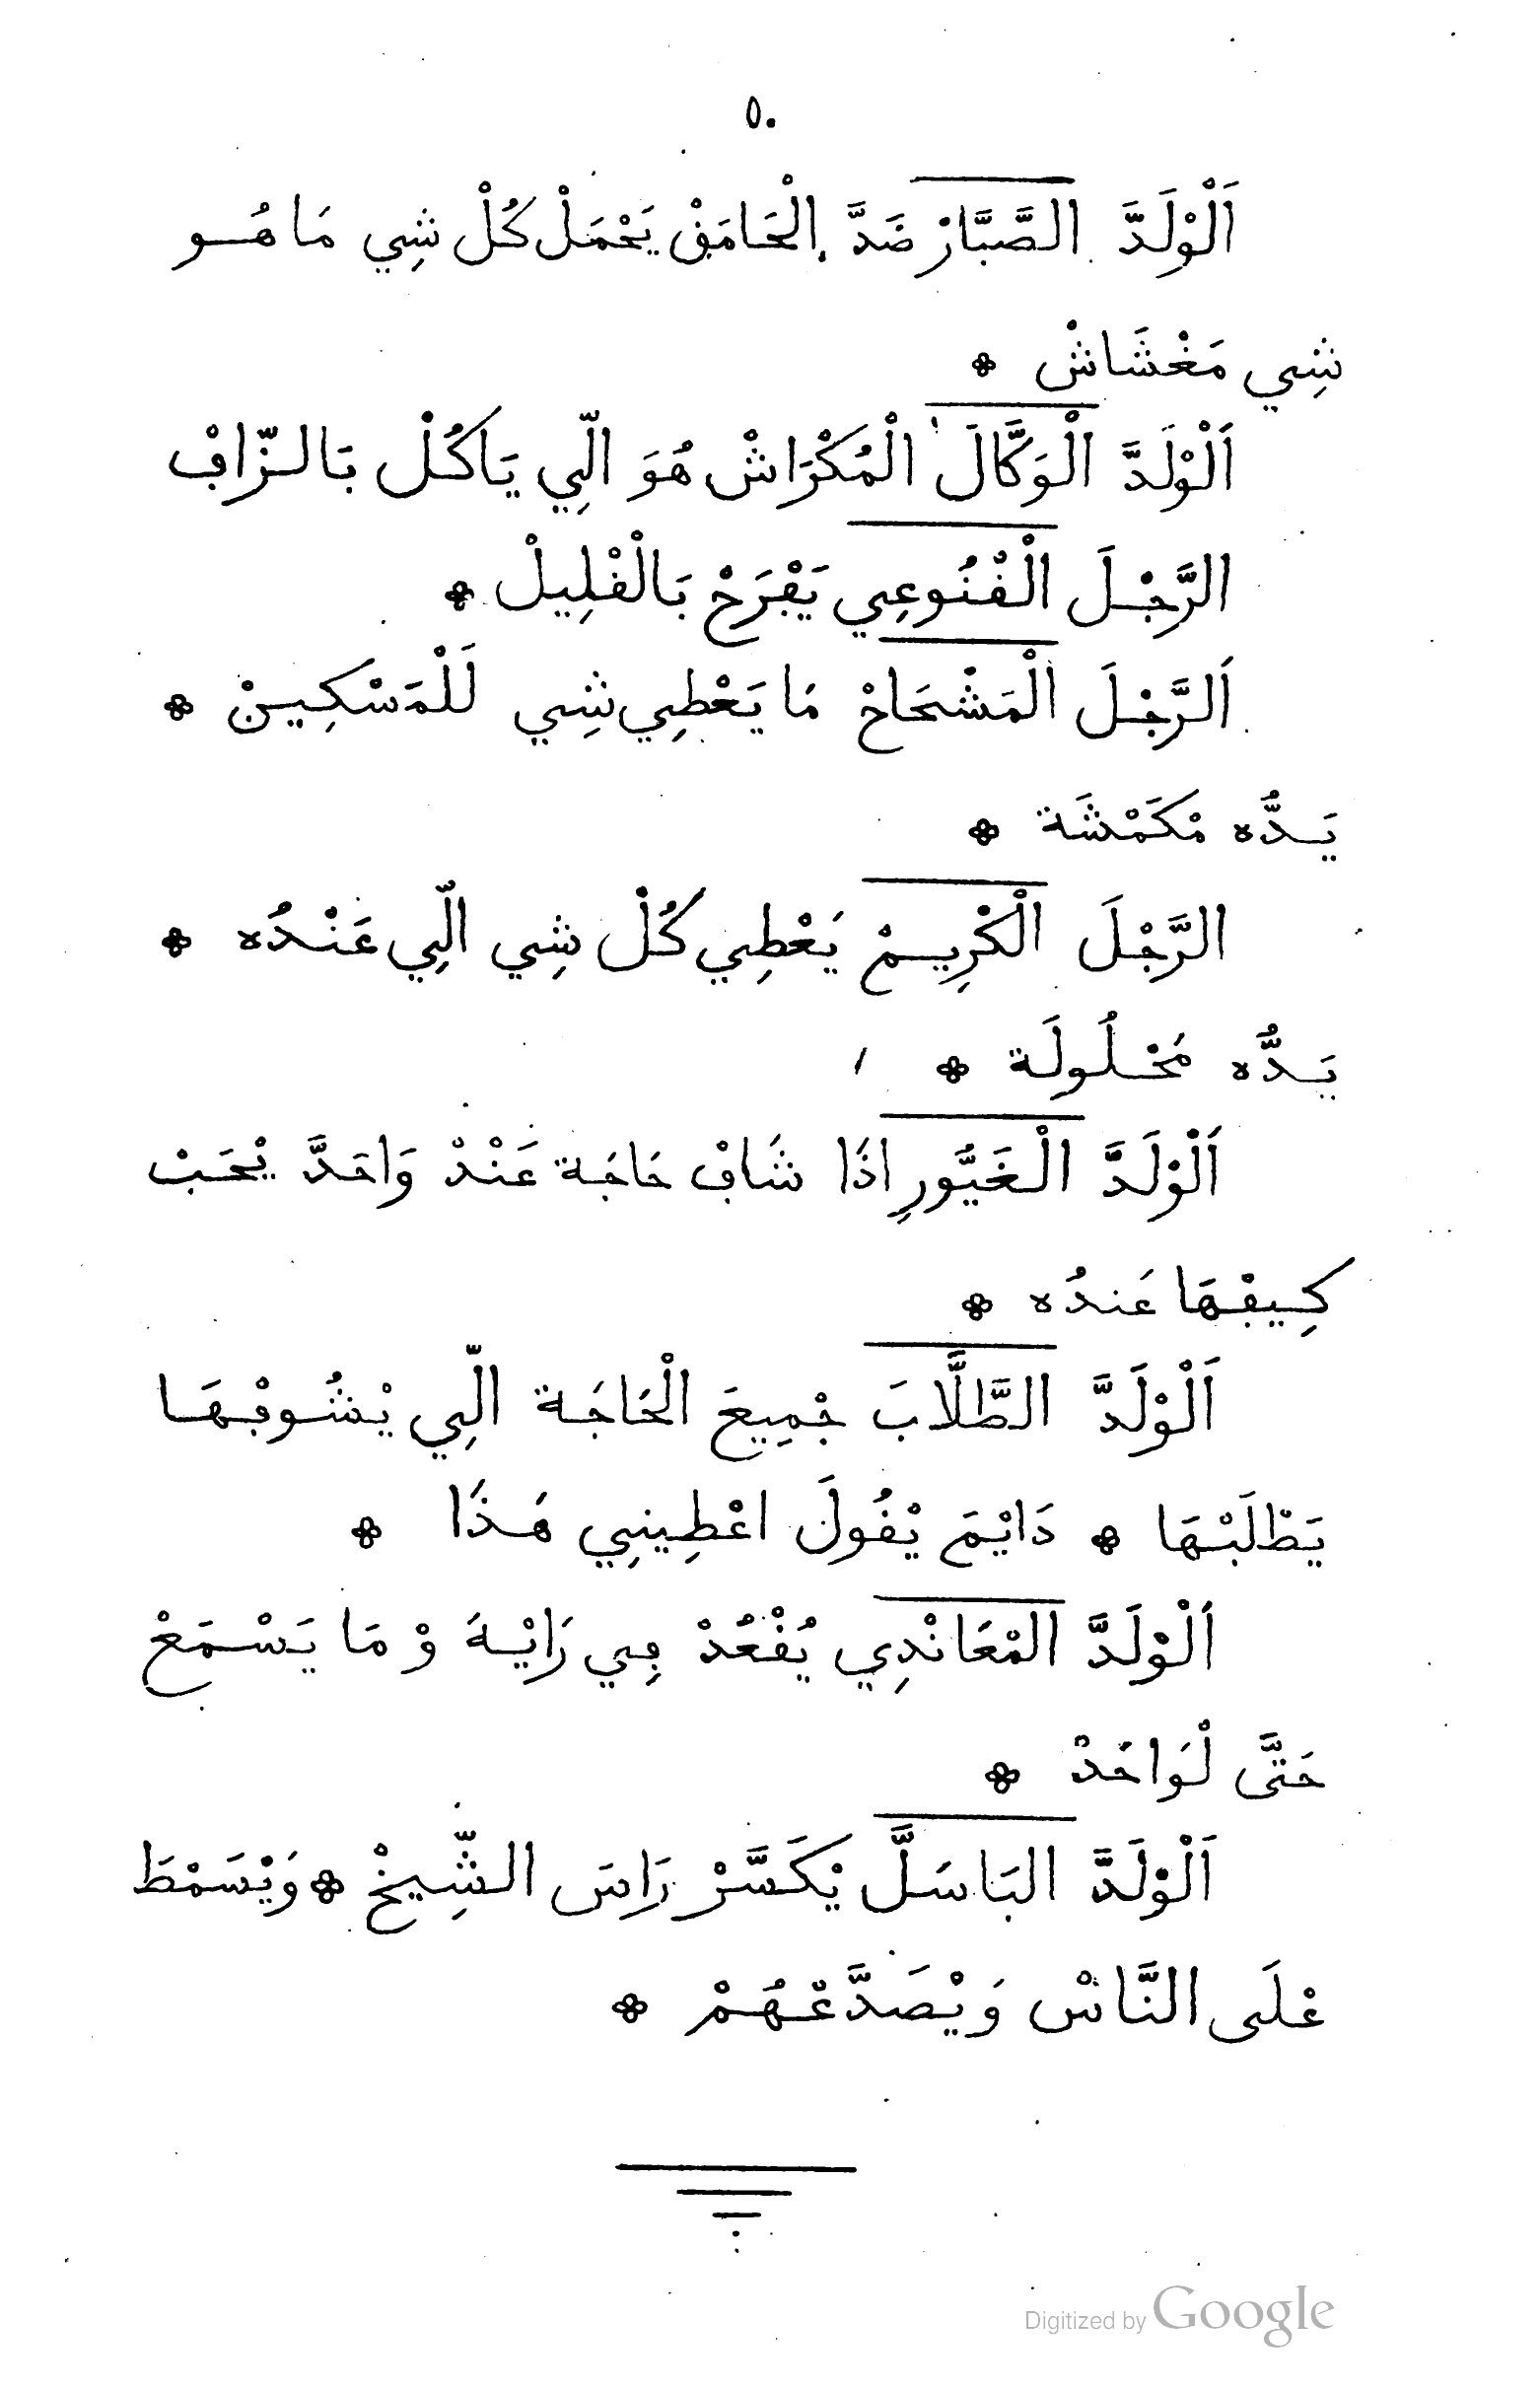 ٥٠
اَلْوْلَدَّ الصَّبَّارْ ضَدَّ اِلْحَامَڧْ يَحْمَلْ كُلْ شِي مَا هُو
شِي مَغْشَاشْ *
اَلْوْلَدَّ اَلْوَكَّالَ الْمُكْرَاشْ هُوَ الِّي يَاكُلْ بَالزّاڢْ
الرَّجْلَ الْڧْنُوعِي يَڢْرَحْ بَالْڧْلِيلْ *
اَلرَّجْلَ الْمَشْحَاحْ مَا يَعْطِي شِي لَلْمَسْكِينْ *
يَدُّه مْكَمْشَة *
الرَّجْلَ الْكْرِيمْ يَعْطِي كُلْ شِي الِّي عَنْدُه *
يَدُّه مَحْلُولَة *
اَلْوْلَدَّ الْغَيُّورِ اذَا شَاڢْ حَاجَة عَنْدْ وَاحَدَّ يْحَبْ
كِيڢْهَا عَندُه *
اَلْوْلَدَّ الطَّلَّابَ جْمِيعَ الْحَاجَة الِّي يْشُوڢْهَا
يَطْلَبْهَا * دَايْمَ يْڧُولَ اعْطِينِي هَذَا *
اَلْوْلَدَّ الْمْعَانْدِي يُڧْعُدْ ڢِي رَايْهَ وْ مَا يَسْمَعْ
حَتَّى لْوَاحَدْ *
اَلْوْلَدَّ البَاسَلَّ يْكَسَّرْ رَاسَ الشِّيخْ * وَيْسَمْطَ
عْلَى النَّاسْ وَيْصَدَّعْهُمْ *
Digitized by Google